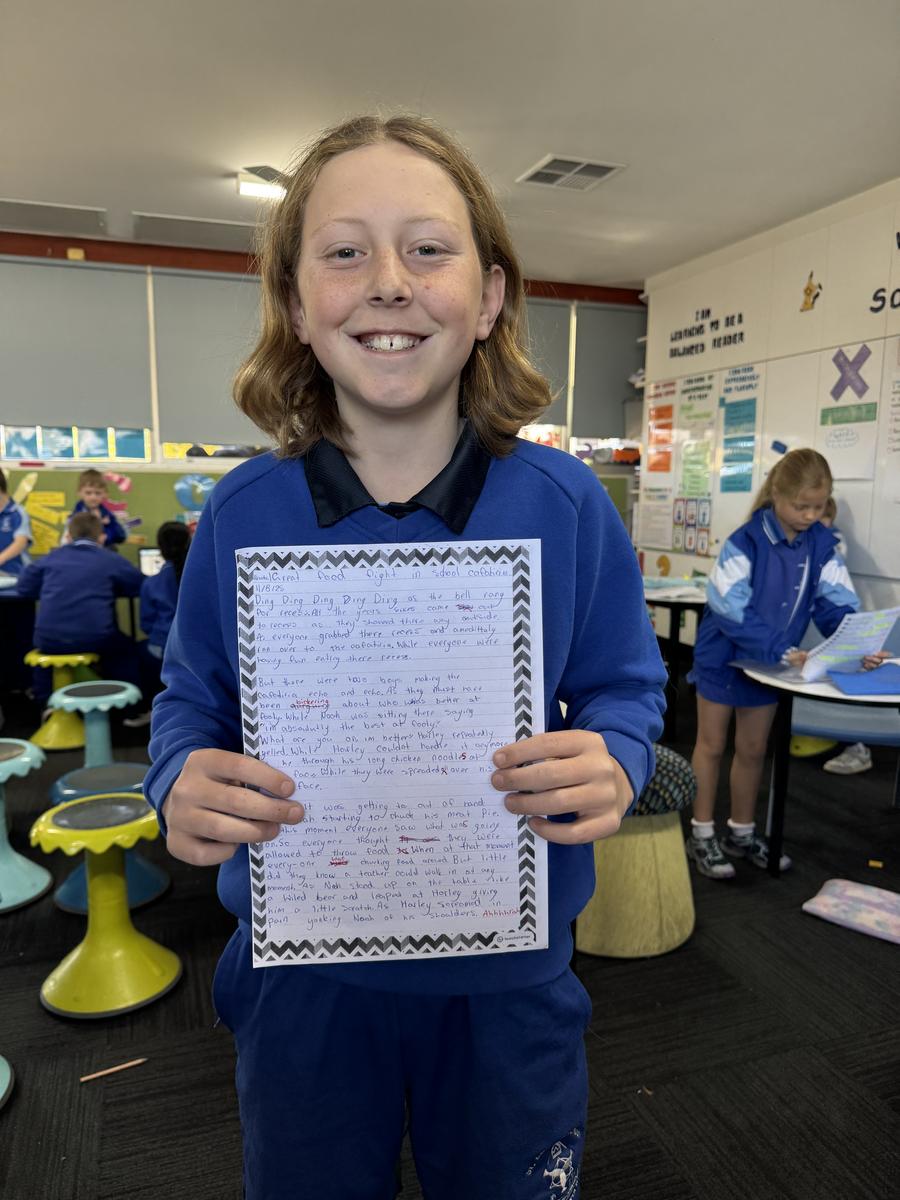 Great food fight in school cafatiria
11/8/25
Ding Ding Ding Ding Ding as the bell rang
for recess. All the years sixes came out
to recess as they shoved there way outside.
As everyone grabbed there recess and
ran over to the cafatiria. While everyone were
having fun eating there recess.
But there were two boys making the
cafatiria echo and echo. As they must have
been bickering about who was better at
footy. While Noah was sitting there saying
I'm absoulutly the best at footy.
What are you on im better! Harley repeatedly
yelled. While Harley couldnt handle it anymore
he through his long chicken noodles at
face. While they were spreaded over his
face.
it was getting to out of hand
starting to chuck his meat Pie.
this moment everyone saw what was going
on. So everyone thought they were
allowed to throw food. When at that moment
every-one was chucking food around. But little
did they know a teacher could walk in at any
moment. As Noah stood up on the table like
a wiled bear and leaped at Harley giving
him a little scratch. As Harley screamed in
pain yonking Noah of his shoulders.
teachstarter
I AM
LEARNING TO BE A
BALANCED READER
SC